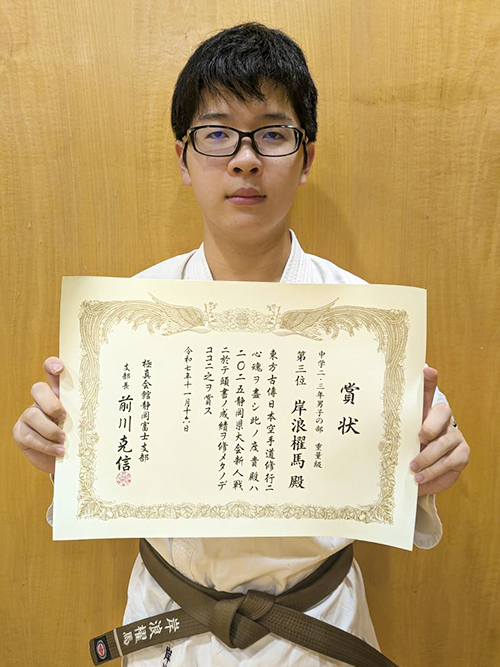 賞状
中学二・三年男子の部 重量級
第三位 岸浪櫂馬殿
東方古傳日本空手道修行ニ
心魂ヲ盡シ此ノ度貴殿ハ
二〇二五静岡県大会新人戦
ニ於テ頭書ノ成績ヲ修メタノデ
ココニ之ヲ賞ス
令和七年十一月十六日
極真会館静岡富士支部
支部長 前川克信
岸浪櫂馬